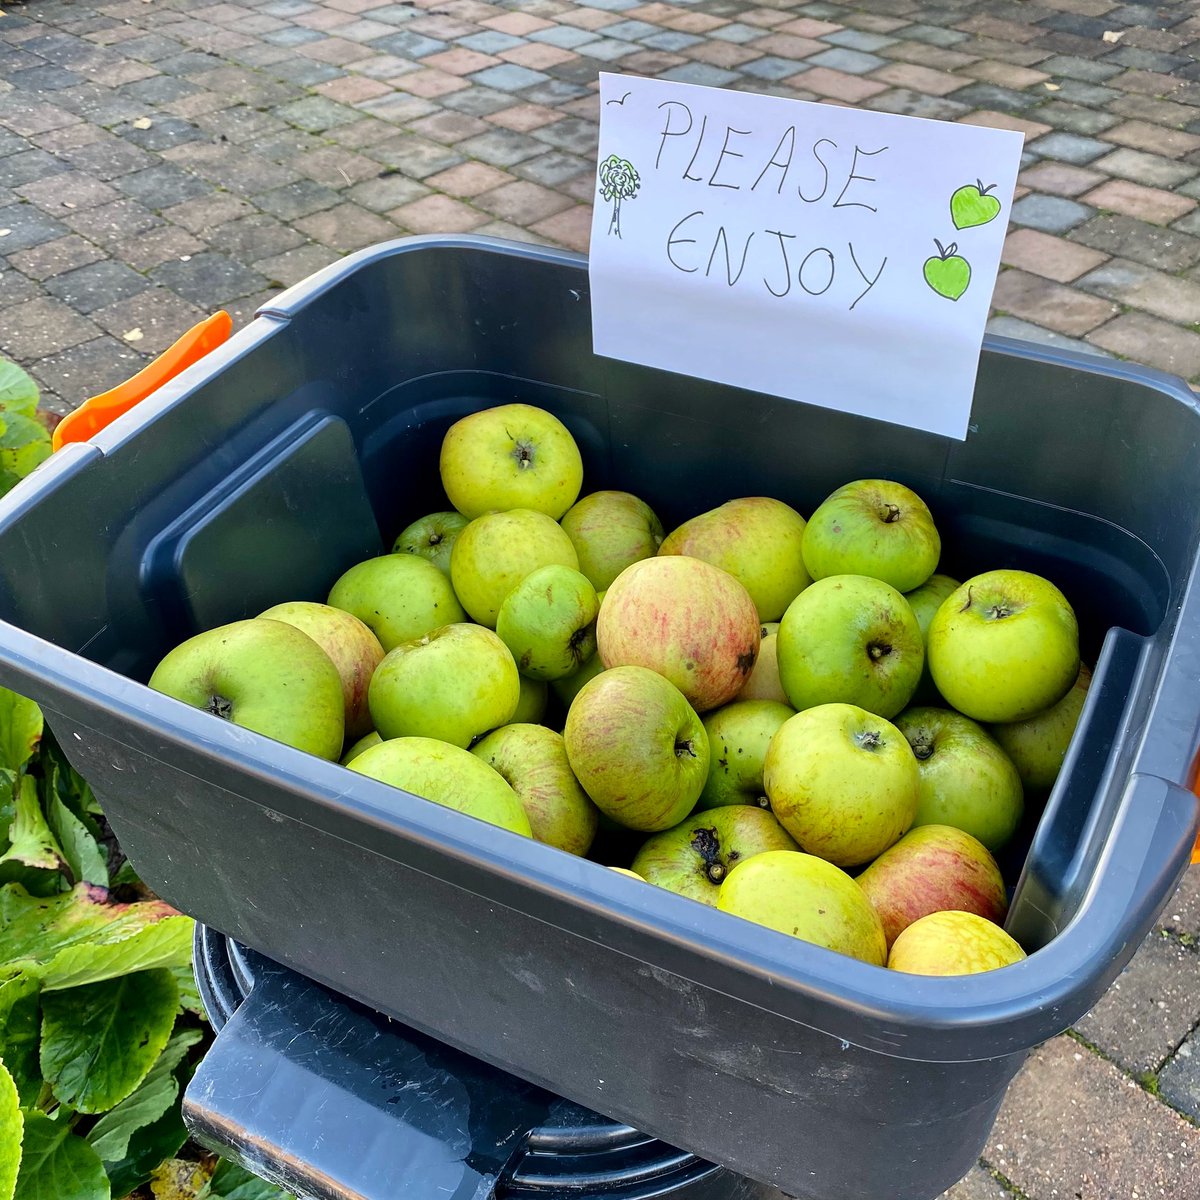 PLEASE
ENJOY